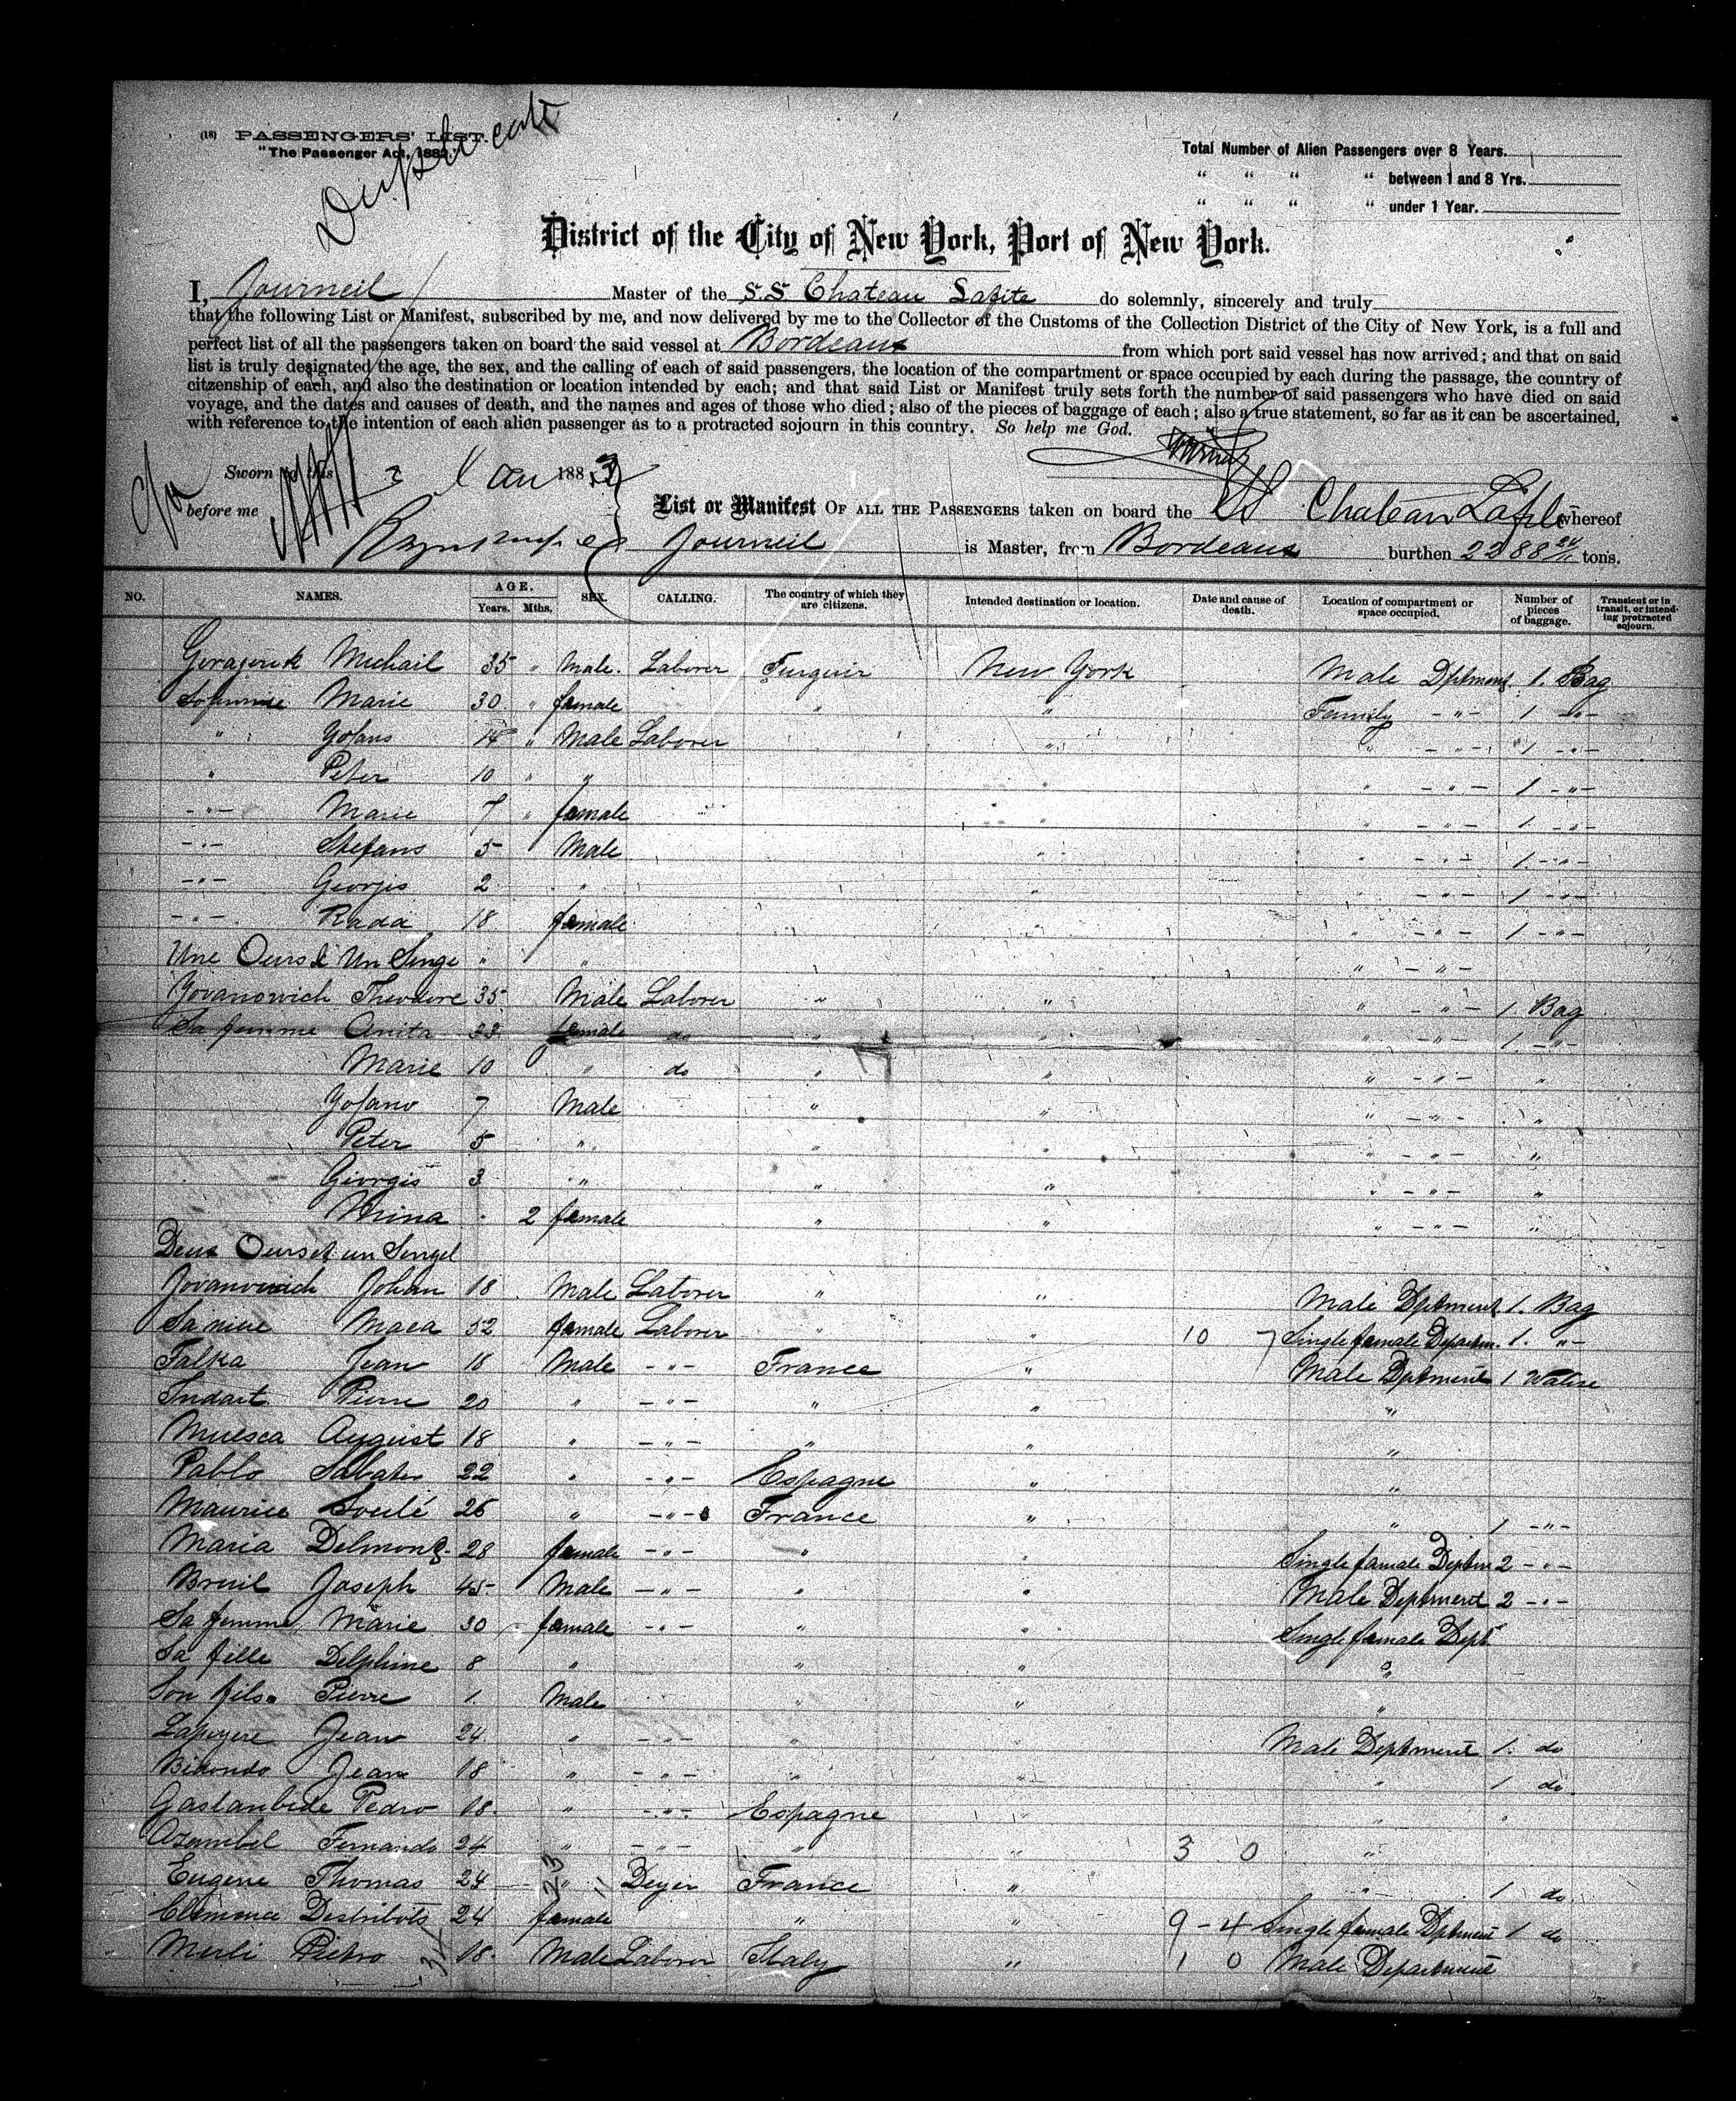 Duplicate
(18) PASSENGERS' LIST.
"The Passenger Act, 1882."
Total Number of Alien Passengers over 8 Years.
" " " " between 1 and 8 Yrs.
" " " " under 1 Year.
District of the City of New York, Port of New York.
I, Journeil Master of the S.S. Chateau Lafite do solemnly, sincerely and truly
that the following List or Manifest, subscribed by me, and now delivered by me to the Collector of the Customs of the Collection District of the City of New York, is a full and
perfect list of all the passengers taken on board the said vessel at Bordeaux from which port said vessel has now arrived; and that on said
list is truly designated the age, the sex, and the calling of each of said passengers, the location of the compartment or space occupied by each during the passage, the country of
citzenship of each, and also the destination or location intended by each; and that said List or Manifest truly sets forth the number of said passengers who have died on said
voyage, and the dates and causes of death, and the names and ages of those who died; also of the pieces of baggage of each; also a true statement, so far as it can be ascertained,
with reference to the intention of each alien passenger as to a protracted sojourn in this country. So help me God.
Sworn to this 3 Jan 1883
before me
List or Manifest OF ALL THE PASSENGERS taken on board the SS Chateau Lafite whereof
Journeil is Master, from Bordeaux burthen 2288 tons.
NO. NAMES. AGE. Years. Mths. SEX. CALLING. The country of which they are citizens. Intended destination or location. Date and cause of death. Location of compartment or space occupied. Number of pieces of baggage. Transient or in transit, or intending protracted sojourn.
Michail 35 " Male. Laborer Turquie New York Male Dptment 1. Bag
Sa femme Marie 30 " female " " Family -"- 1 -"-
" Yofans 14 " Male Laborer " -"- 1 -"-
" Peter 10 " " " " -"- 1 -"-
-"- Marie 7 " female " " -"- 1 -"-
-"- Stefans 5 Male " " -"- 1 -"-
-"- Georgis 2 " " " -"- 1 -"-
-"- Rada 18 female " " -"- 1 -"-
Une Ours & Un Singe " " " -"-
Yovanowich Theodore 35 Male Laborer " " " -"- 1 Bag
Sa femme Anita 33 female do " " " -"- 1 -"-
Marie 10 " do " " " -"- "
Yofano 7 Male " " " -"- "
Peter 5 " " " " -"- "
Giorgis 3 " " " " -"- "
Mina 2 female " " " -"- "
Deux Ours et un Singe
Jovanowich Johan 18 Male Laborer " " Male Dptment 1. Bag
Sa mere Mara 52 female Laborer " " 10 7 Single female Departm. 1. "-
Falka Jean 18 Male -"- France " Male Dptment 1 Valise
Indart Pierre 20 " -"- " " "
Muesca August 18 " -"- " " "
Pablo Sabater 22 " -"- Espagne " "
Maurice Soulé 26 " -"- France " " 1 -"-
Maria 28 female -"- " " Single female Dptm 2 -"-
Breuil Joseph 45 Male -"- " " Male Deptment 2 -"-
Sa femme Marie 30 female -"- " " Single female Dept
Sa fille Delphine 8 " " " "
Son fils Pierre 1. Male " " "
Lapeyere Jean 24 " -"- " " Male Deptment 1. do
Bidondo Jean 18 " -"- " " " 1 do
Gastanbide Pedro 18. " -"- Espagne " "
Fernando 24 " -"- " " 3 0 "
Eugene Thomas 24 " Dyer France " " 1 do.
Clemence 24 female " " 9-4 Single female Dptment 1 do
Merli Pietro 18. Male Laborer Italy " 1 0 Male Department